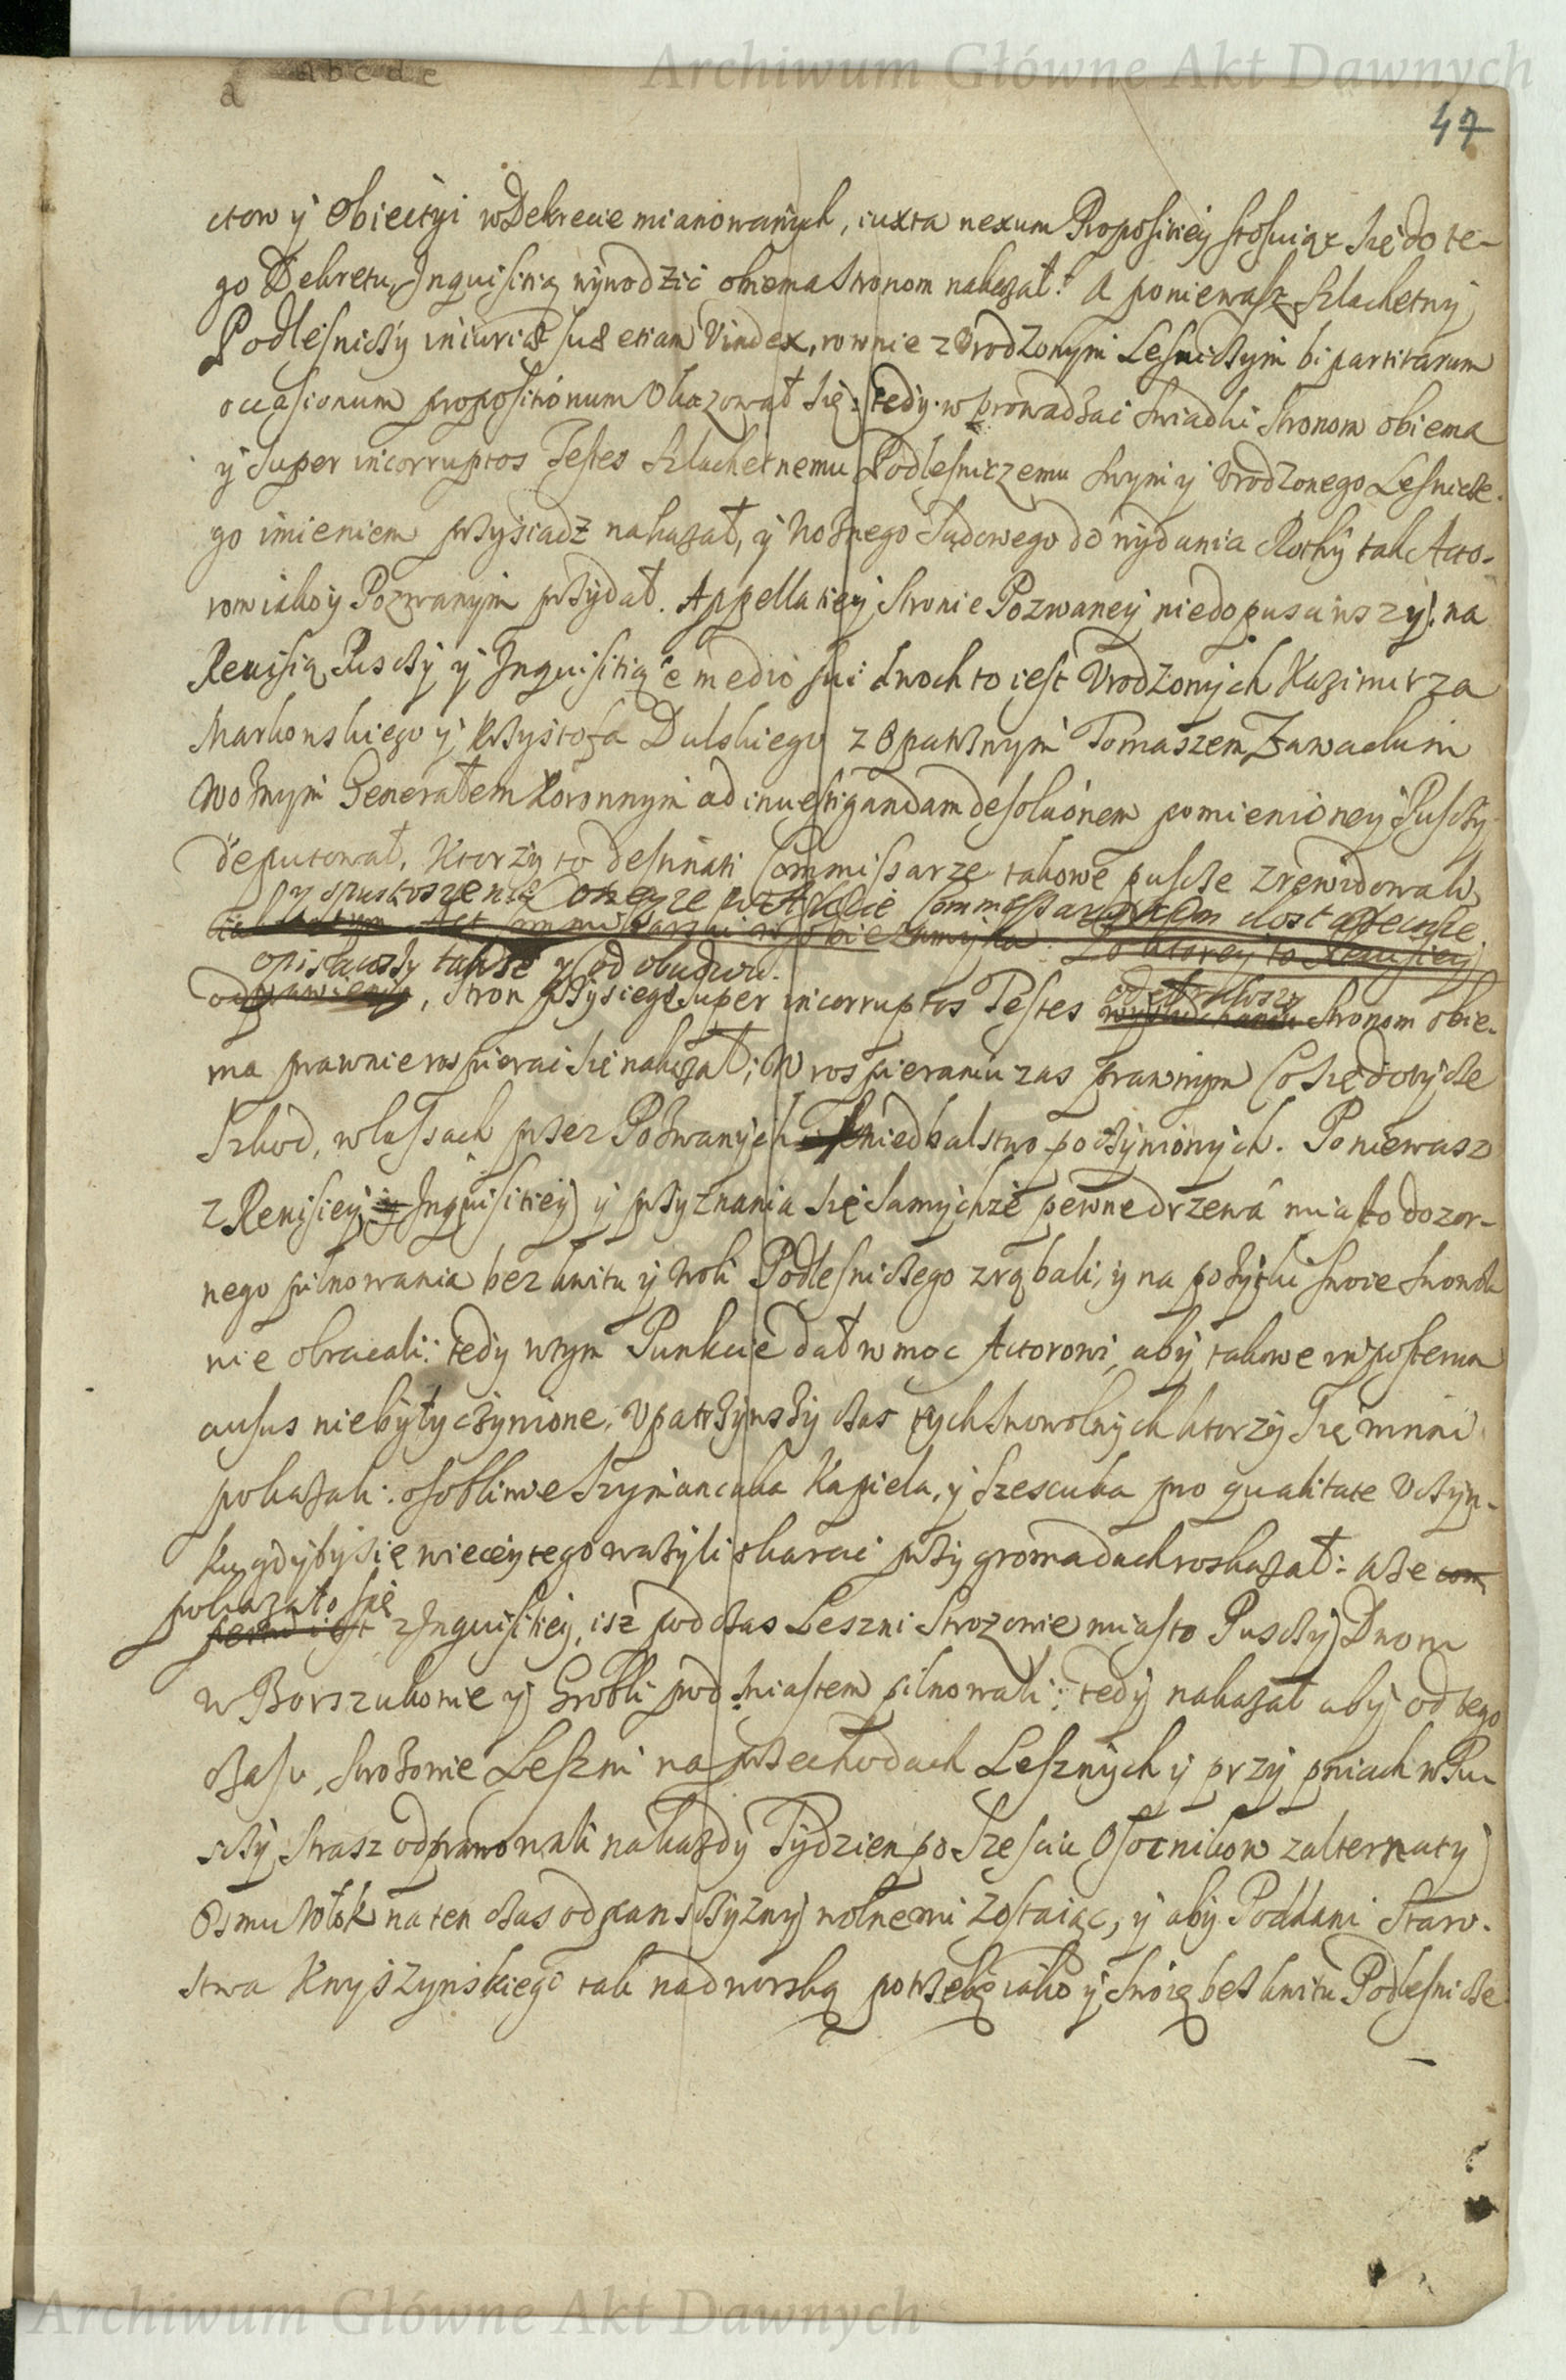 Archiwum Główne Akt Dawnych
a b c d e
a
47
ctow y Obiectyi w Dekrecie mianowanych, iuxta nexum Propositiey stosuiąc się do te-
go Dekretu, Inquisitią wywodzić obiema Stronom nakazał. A poniewasz Szlachetny
Podlesniczy iniuriæ suæ etiam Vindex, rownie z Urodzonym Lesniczym bipartitarum
occasionum propositionum Okazował się: tedy wprowadzać swiadki Stronom obiema
y super incorruptos Testes Szlachetnemu Podlesniczemu swym y Urodzonego Lesnicze-
go imieniem przysiadz nakazał, y Woznego Sądowego do wydania Rothy tak Acto-
rowi iako y Pozwanym przydał. Appellatiey Stronie Pozwaney niedopusciwszy: na
Rewisią Pusczy y Inquisitią e medio sui dwoch to iest Urodzonych Kazimirza
Markowskiego y Krzysztofa Dulskiego z Opatrznym Tomaszem Zawadzkim
Woznym Generałem Koronnym ad inuestigandam desolaõnem pomienioney Pusczy
deputował. Ktorzy to destinati Commissarze takowe puscze zrewidowali,
y spustoszenie oneyze w Akcie Commissarskim dostatecznie
opisawszy takze y od obudwu
Stron przysięgę super incorruptos Testes odebrawszy Stronom obie-
ma prawnie rospierac się nakazał; W rospieraniu zas prawnym Co się dotycze
Szkod, w lassach przez Pozwanych niedbalstwo poczynionych. Poniewasz
z Rewisiey Inquisitiey y przyznania się samychze pewne drzewa miasto dozor-
nego pilnowania bez kwitu y woli Podlesniczego zrąbali, y na pozytki swoie
nie obracali: tedy w tym Punkcie dał w moc Actorowi, aby takowe in posterum
ausus niebyły czynione, Upatrzywszy czas tych swowolnych ktorzy się winni
pokazali: osobliwie Szymanczuka Kapiela, y Szesciuka pro qualitate Uczyn-
ku gdyby się wiecey tego wazyli skarac przy gromadach roskazał: a ze
pokazało się
z Inquisitiey, isz podczas Leszni Strozowie miasto Pusczy Dworu
w Borszukowie y Grobli pod Miastem pilnowali: tedy nakazał aby od tego
czasu, strozowie Leszni na przechodach Lesznych y przy pniach w Pu-
sczy Strasz odprawowali na kazdy Tydzien po Szesciu Osocnikow z alternaty
Osmu Włok na ten czas od panszczyzny wolnemi zostaiąc, y aby Poddani Staro-
stwa Knyszynskiego tak na dworską potrzebę iako y swoię bez kwitu Podlesnicze
Archiwum Główne Akt Dawnych